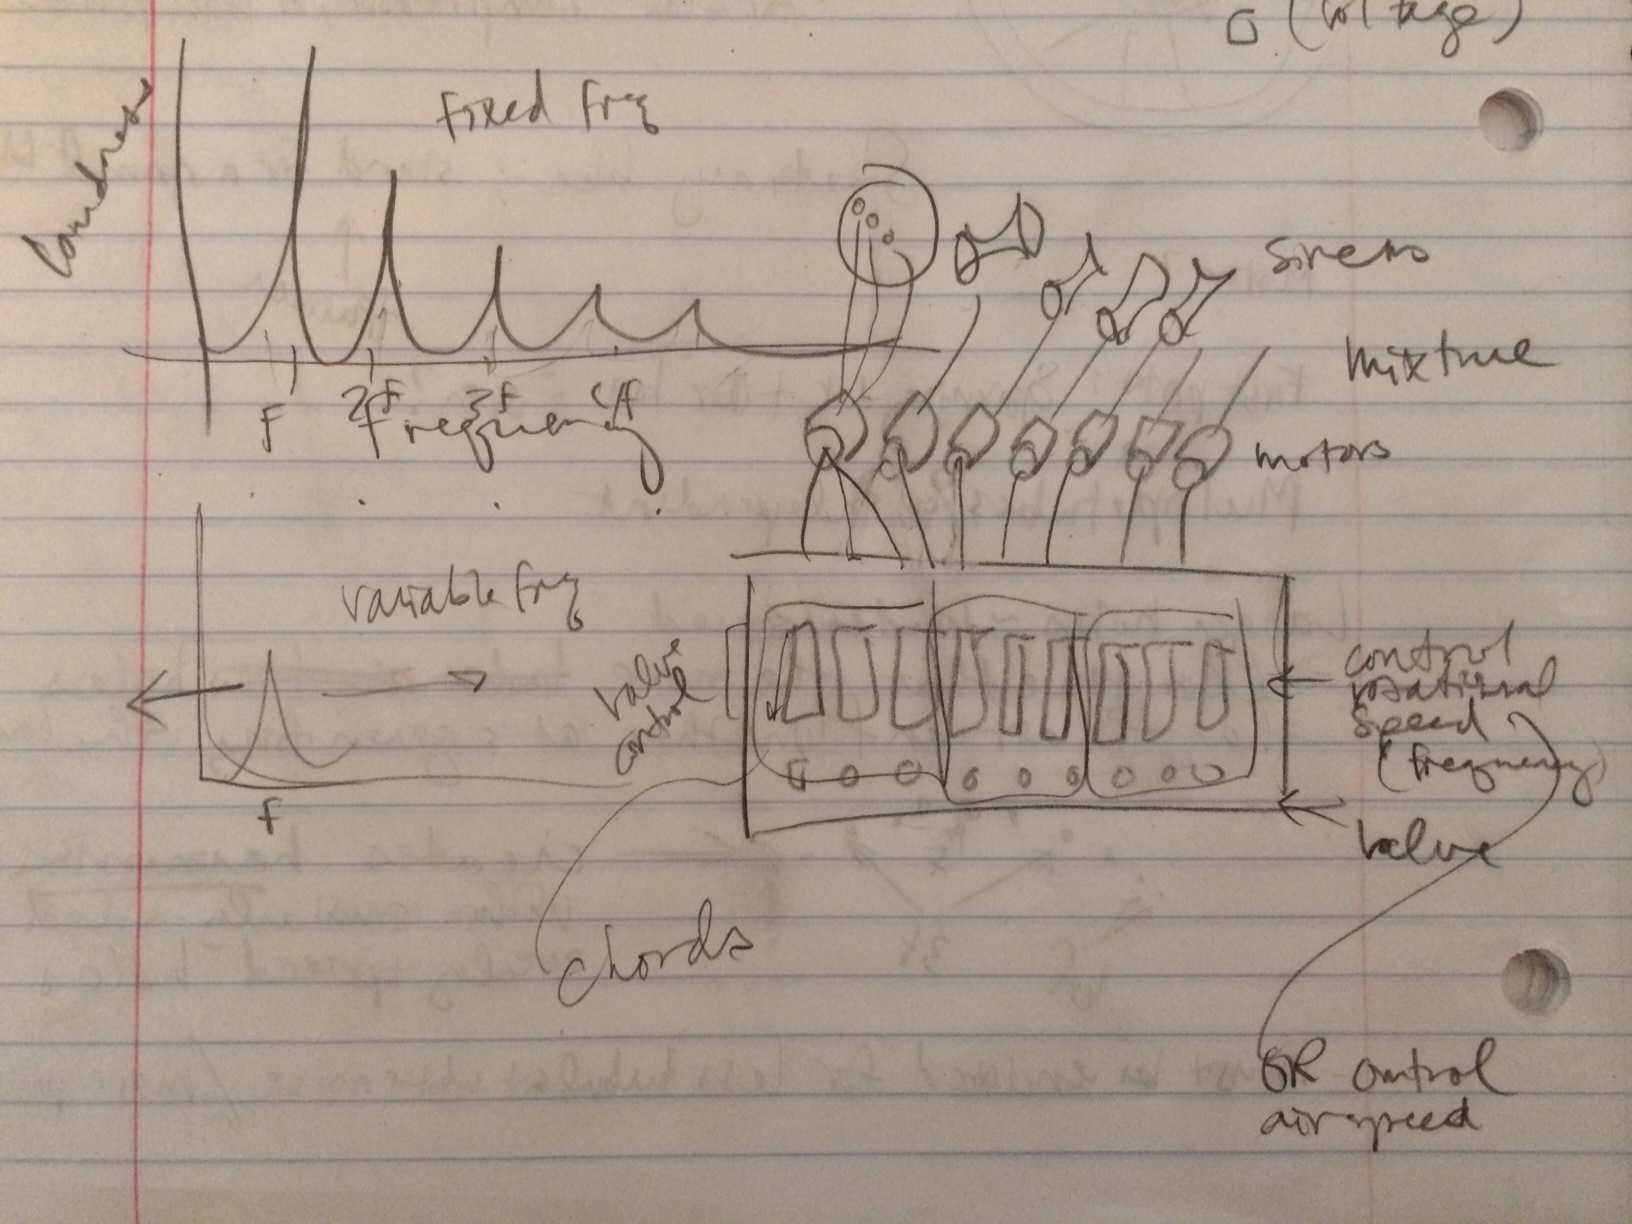 (voltage)
Loudness
Fixed freq
sirens
mixture
F 2F 3F 4F
Frequency
motors
variable freq
valve
control
control
rotational
speed
(frequency)
F
valve
chords
OR control
airspeed